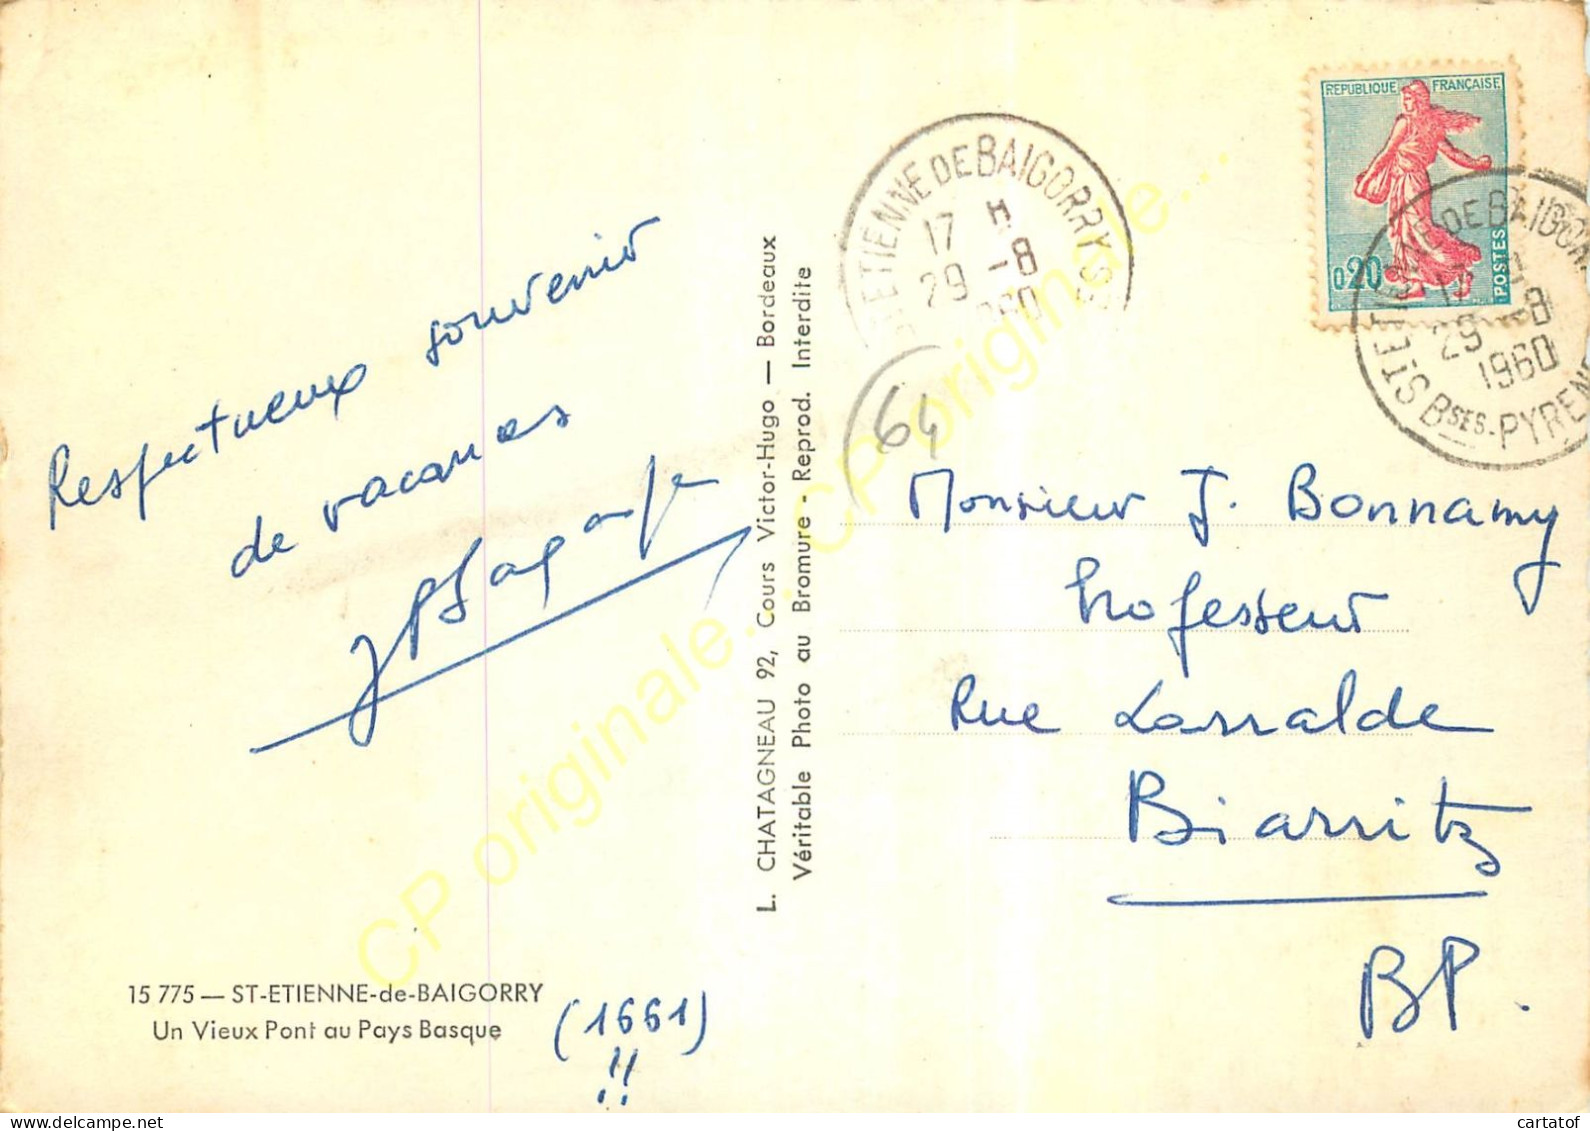 Respectueux souvenir
de vacances
15 775 — ST-ETIENNE-de-BAIGORRY
Un Vieux Pont au Pays Basque
(1661)
!!
L. CHATAGNEAU 92, Cours Victor-Hugo — Bordeaux
Véritable Photo au Bromure - Reprod. Interdite
REPUBLIQUE FRANÇAISE
0,20
POSTES
ST ETIENNE DE BAIGORRY
17 H
29 -8
1960
ST ETIENNE DE BAIGORRY
29 -8
1960
BSES-PYRENEES
64
Monsieur J. Bonnamy
Professeur
Rue Larralde
Biarritz
BP.
CP originale... CP originale...
cartatof